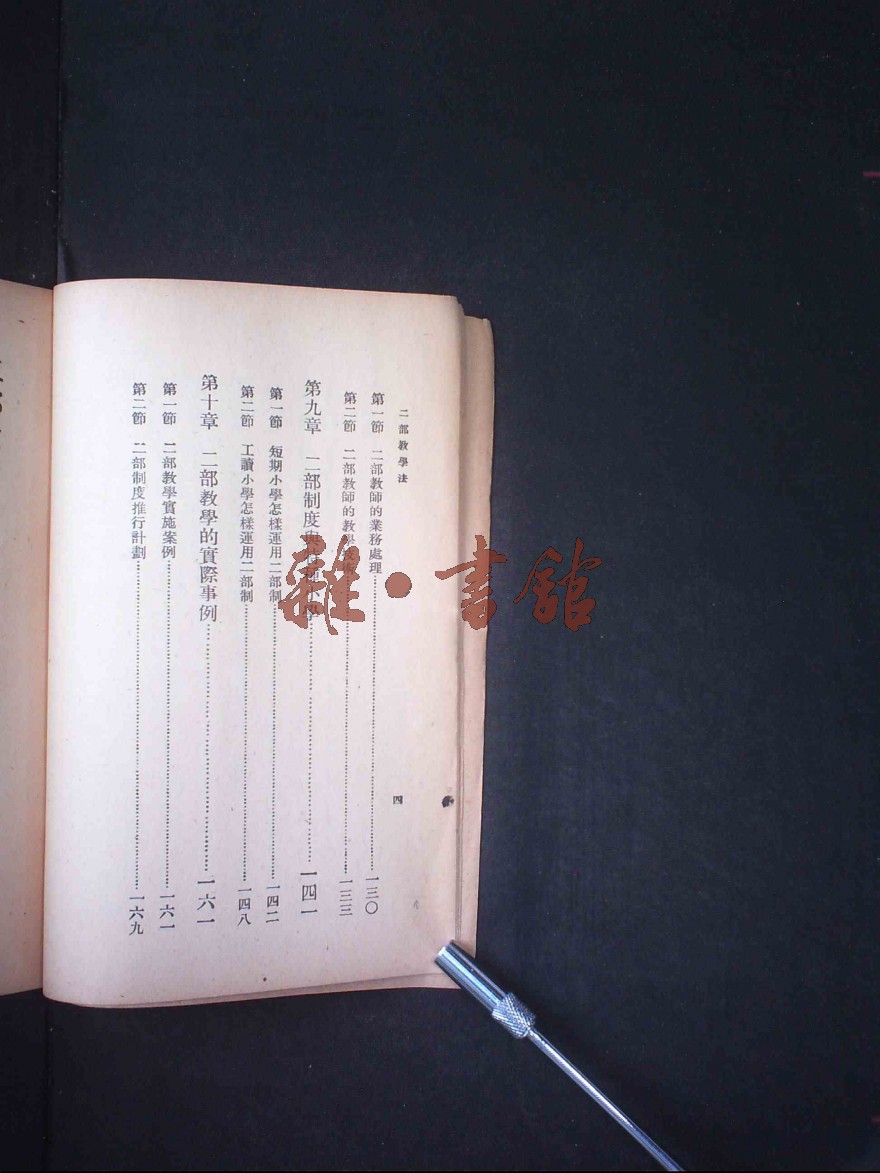 二部教學法
四
第一節 二部教師的業務處理……一三〇
第二節 二部教師的教學……一三三
第九章 二部制度與小學……一四一
第一節 短期小學怎樣運用二部制……一四二
第二節 工讀小學怎樣運用二部制……一四八
第十章 二部教學的實際事例……一六一
第一節 二部教學實施案例……一六一
第二節 二部制度推行計劃……一六九
雜·書館